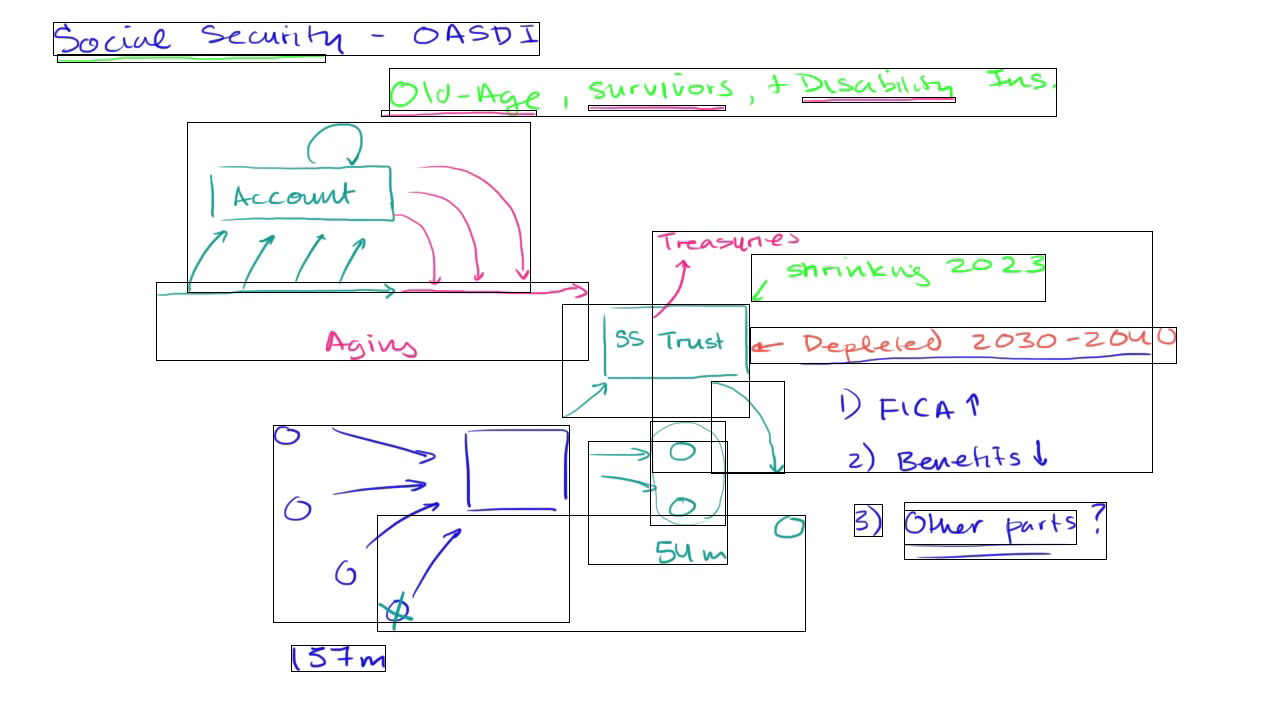 Social Security - OASDI
Old-Age, survivors, + Disability Ins.
Account
Treasuries
shrinking 2023
Aging
SS Trust
← Depleted 2030-2040
1) FICA ↑
2) Benefits ↓
3) Other parts?
54 m
157m